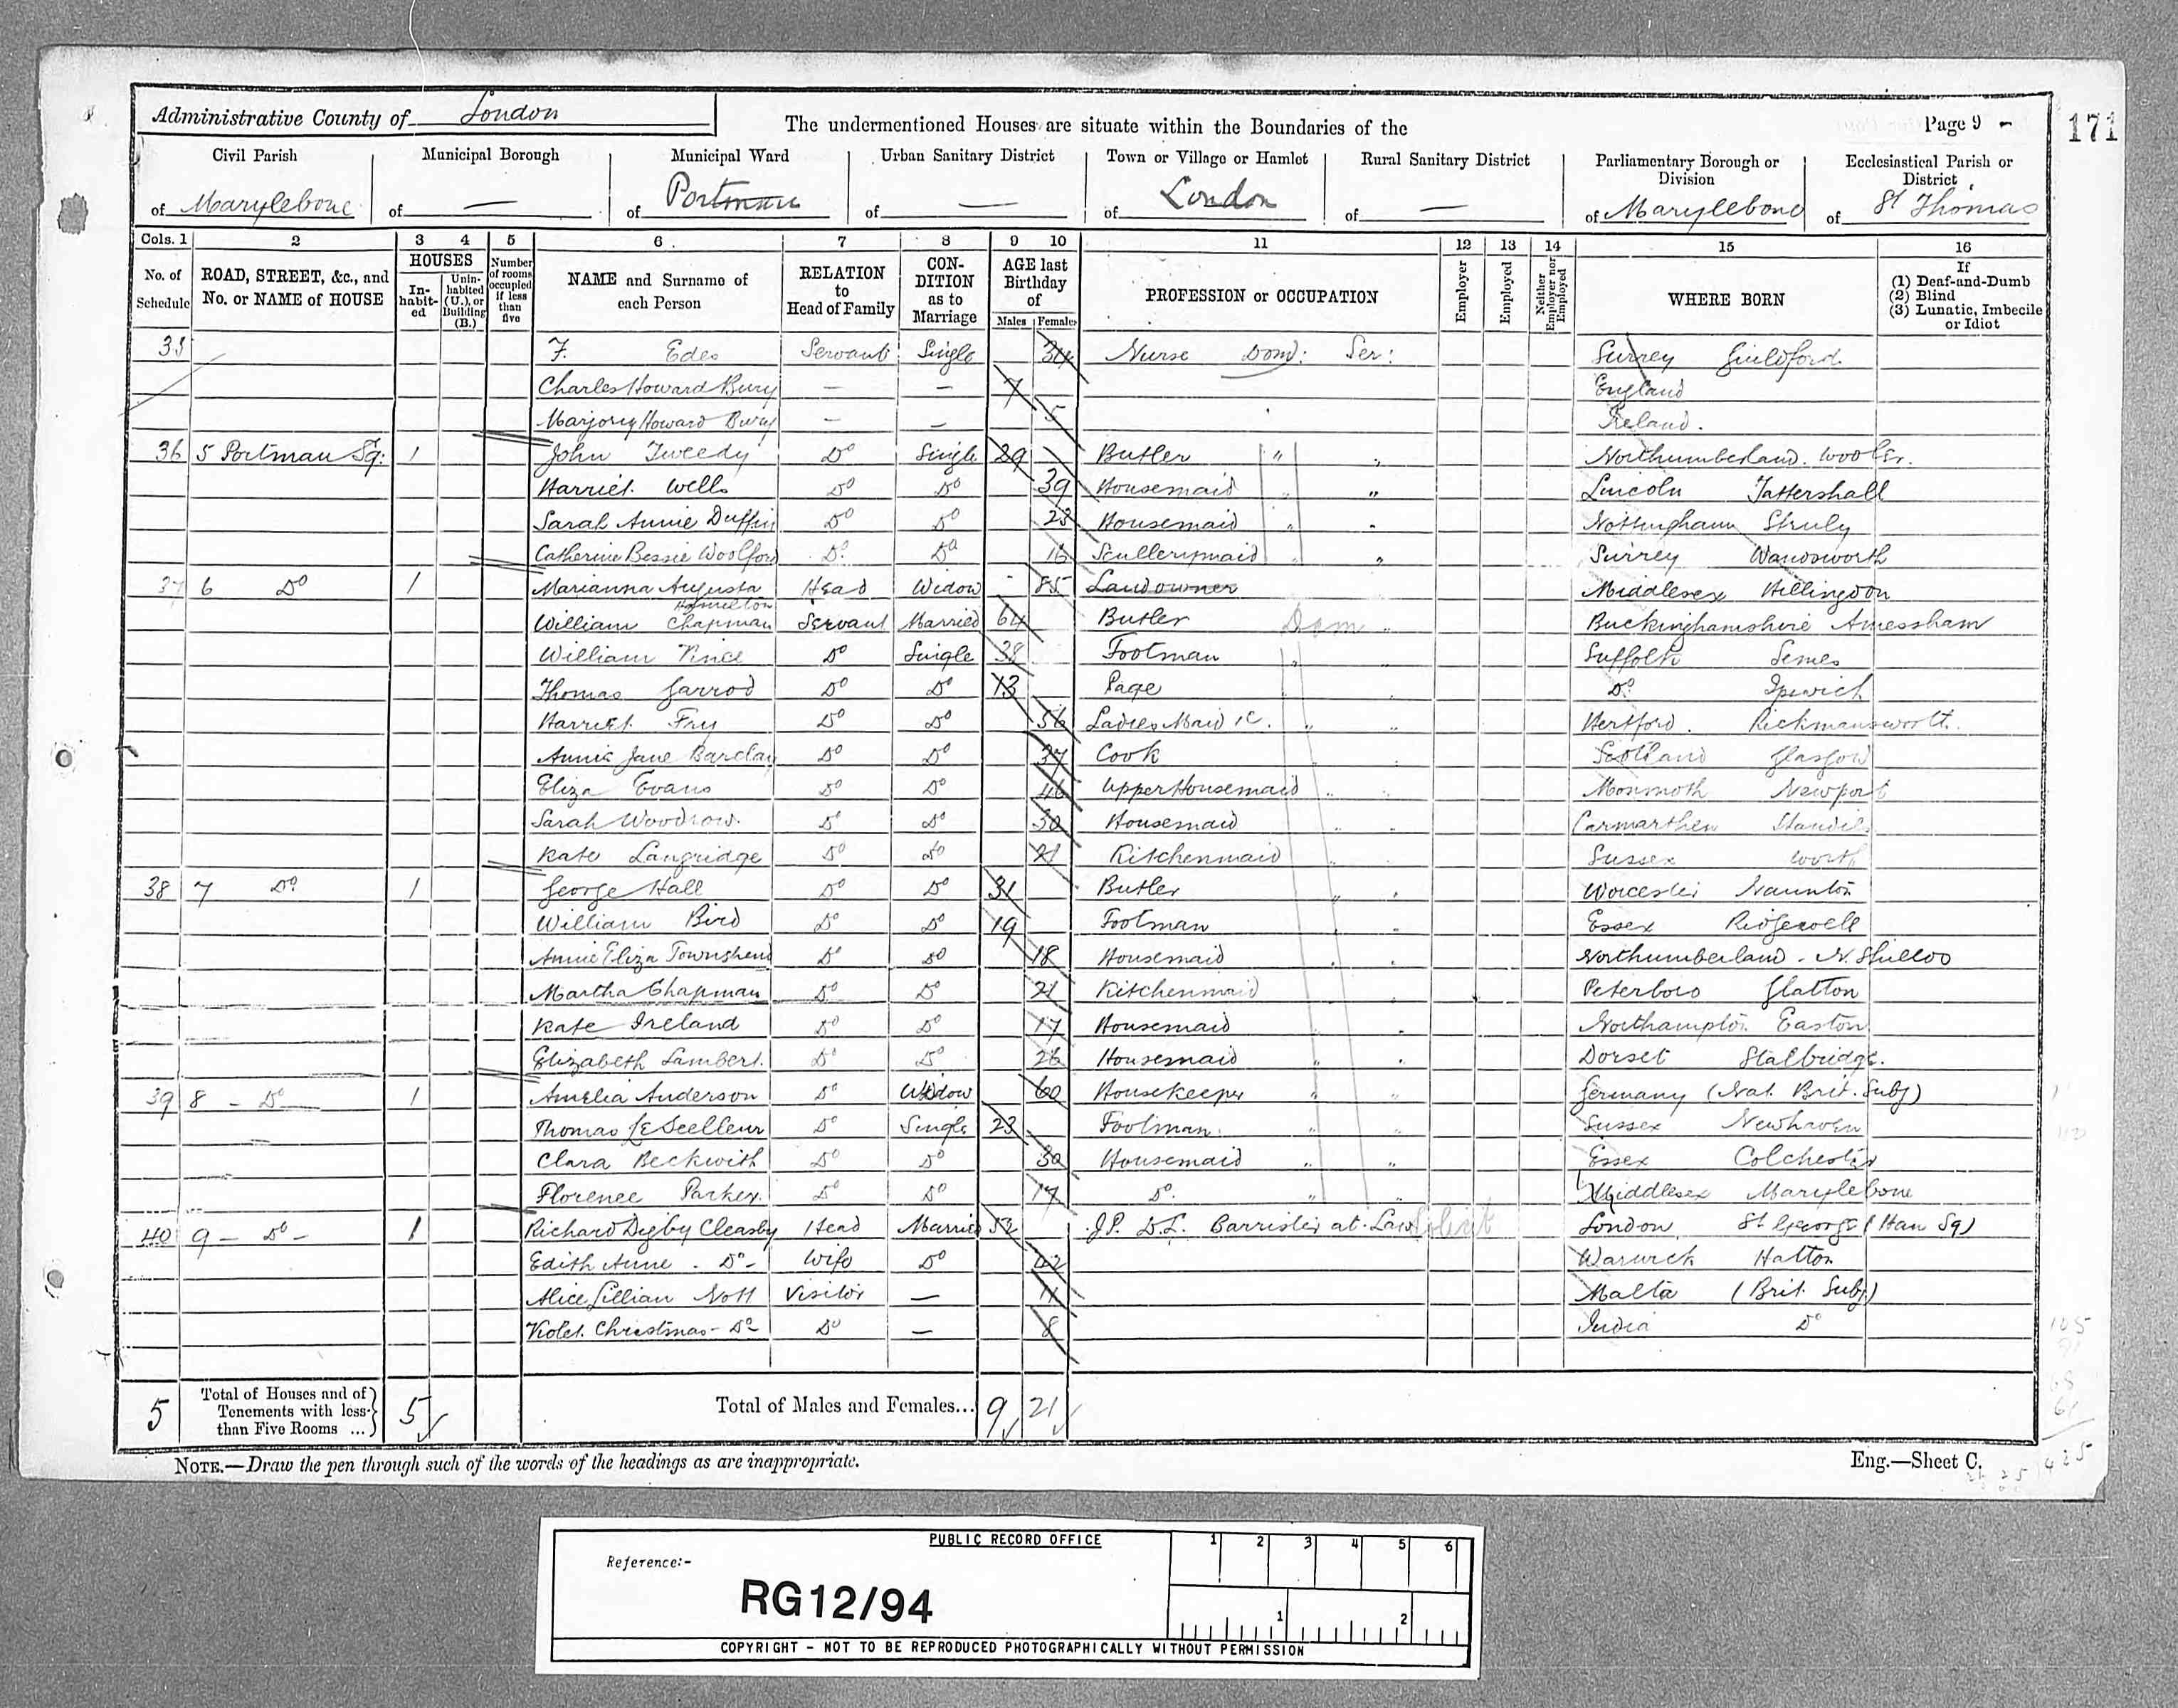 Administrative County of London
The undermentioned Houses are situate within the Boundaries of the
Page 9
171
Civil Parish of Marylebone
Municipal Borough of —
Municipal Ward of Portman
Urban Sanitary District of —
Town or Village or Hamlet of London
Rural Sanitary District of —
Parliamentary Borough or Division of Marylebone
Ecclesiastical Parish or District of St Thomas
Cols. 1 2 3 4 5 6 7 8 9 10 11 12 13 14 15 16
No. of Schedule
ROAD, STREET, &c., and No. or NAME of HOUSE
HOUSES
In-habit-ed
Unin-habited (U.), or Building (B.)
Number of rooms occupied if less than five
NAME and Surname of each Person
RELATION to Head of Family
CON-DITION as to Marriage
AGE last Birthday of
Males Females
PROFESSION or OCCUPATION
Employer
Employed
Neither Employer nor Employed
WHERE BORN
If (1) Deaf-and-Dumb (2) Blind (3) Lunatic, Imbecile or Idiot
35 F. Edes Servant Single 34 Nurse Dom: Ser: Surrey Guildford
Charles Howard Bury — — 7 England
Marjory Howard Bury — — 5 Ireland.
36 5 Portman Sq: 1 John Tweedy Do Single 29 Butler " " Northumberland. Wooler.
Harriet Wells Do Do 39 Housemaid " " Lincoln Tattershall
Sarah Annie Duffin Do Do 23 Housemaid " " Nottingham
Catherine Bessie Woolford Do Do 16 Scullerymaid " " Surrey Wandsworth
37 6 Do 1 Marianna Augusta Hamilton Head Widow - 85 Landowner Middlesex Hillingdon
William Chapman Servant Married 64 Butler Dom " Buckinghamshire Amessham
William Vince Do Single 38 Footman " " Suffolk Semes
Thomas Jarrod Do Do 13 Page " " Do Ipswich
Harriet Fry Do Do 56 Ladies Maid " " Hertford. Rickmansworth.
Annie Jane Barclay Do Do 37 Cook " " Scotland Glasgow
Eliza Evans Do Do 46 Upper Housemaid " " Monmoth Newport
Sarah Woodrow. Do Do 30 Housemaid " " Carmarthen
Kate Langridge Do Do 21 Kitchenmaid " " Sussex Worth
38 7 Do 1 George Hall Do Do 31 Butler " " Worcester Naunton
William Bird Do Do 19 Footman " " Essex Ridgewell
Annie Eliza Townshend Do Do 18 Housemaid " " Northumberland - N. Shields
Martha Chapman Do Do 21 Kitchenmaid " " Peterboro Glatton
Kate Ireland Do Do 17 Housemaid " " Northampton Easton
Elizabeth Lambert. Do Do 26 Housemaid " " Dorset Stalbridge.
39 8 - Do 1 Amelia Anderson Do Widow 60 Housekeeper " " Germany (Nat. Brit. Subj)
Thomas Le Seelleur Do Single 23 Footman. " " Sussex Newhaven
Clara Beckwith Do Do 30 Housemaid " " Essex Colchester
Florence Parker. Do Do 17 Do. " " Middlesex Marylebone
40 9 - Do - 1 Richard Digby Cleasby Head Married 52 J.P. D.L. Barrister at Law London St George (Han Sq)
Edith Anne - Do - Wife Do 42 Warwick Hatton
Alice Lillian Nott Visitor — 11 Malta (Brit. Subj.)
Violet Christmas - Do Do — 8 India Do
5 Total of Houses and of Tenements with less than Five Rooms ... 5
Total of Males and Females... 9 21
NOTE.—Draw the pen through such of the words of the headings as are inappropriate.
Eng.—Sheet C.
PUBLIC RECORD OFFICE
1 2 3 4 5 6
Reference:-
RG12/94
1 2
COPYRIGHT - NOT TO BE REPRODUCED PHOTOGRAPHICALLY WITHOUT PERMISSION